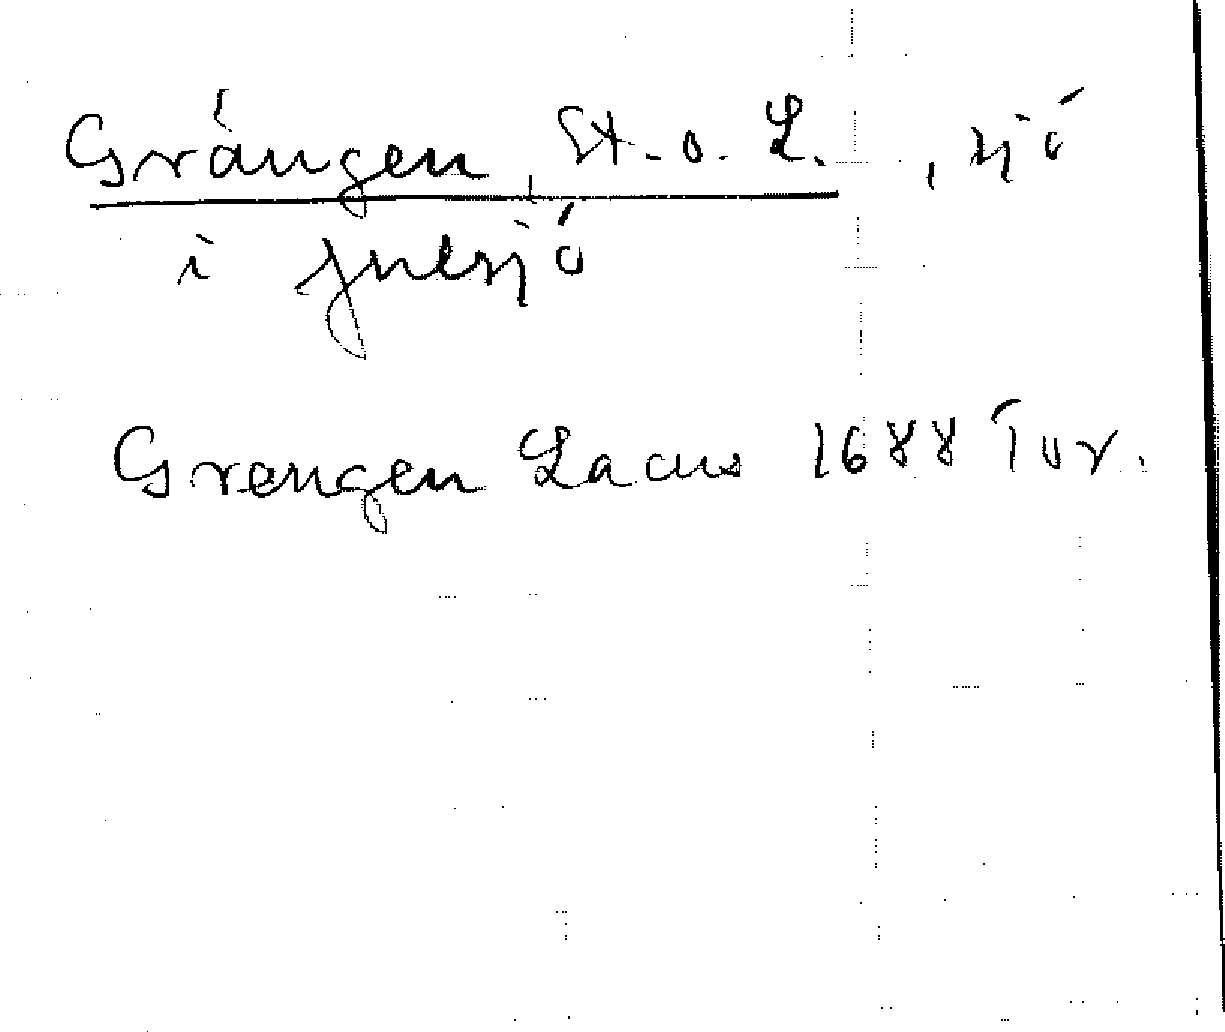 Grängen, St. o. L., sjö
i Julsjö
Grengen Lacus 1688 Tur.